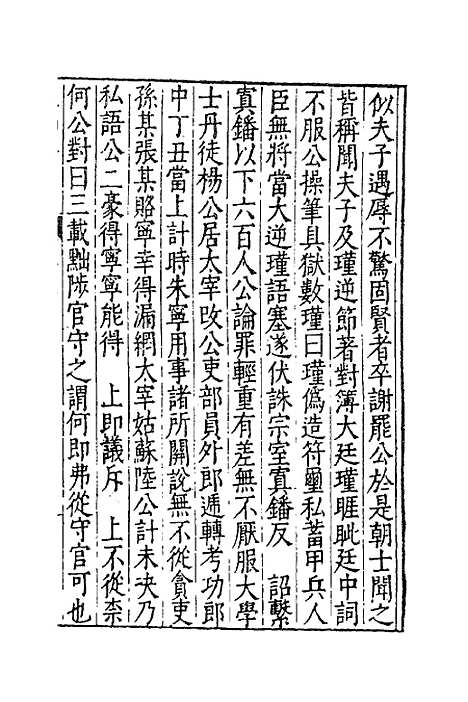 似夫子遇辱不驚固賢者卒謝罷公於是朝士聞之
皆稱聞夫子及瑾逆節著對簿大廷瑾睚眦廷中詞
不服公操筆具獄數瑾曰瑾偽造符璽私蓄甲兵人
臣無將當大逆瑾語塞遂伏誅宗室寘鐇反 詔繫
寘鐇以下六百人公論罪輕重有差無不厭服大學
士丹徒楊公居太宰改公吏部員外郎遞轉考功郎
中丁丑當上計時朱寧用事諸所關說無不從貪吏
孫某張某賂寧幸得漏網太宰姑蘇陸公計未决乃
私語公二豪得寧寧能得 上即議斥 上不從柰
何公對曰三載黜陟官守之謂何即弗從守官可也